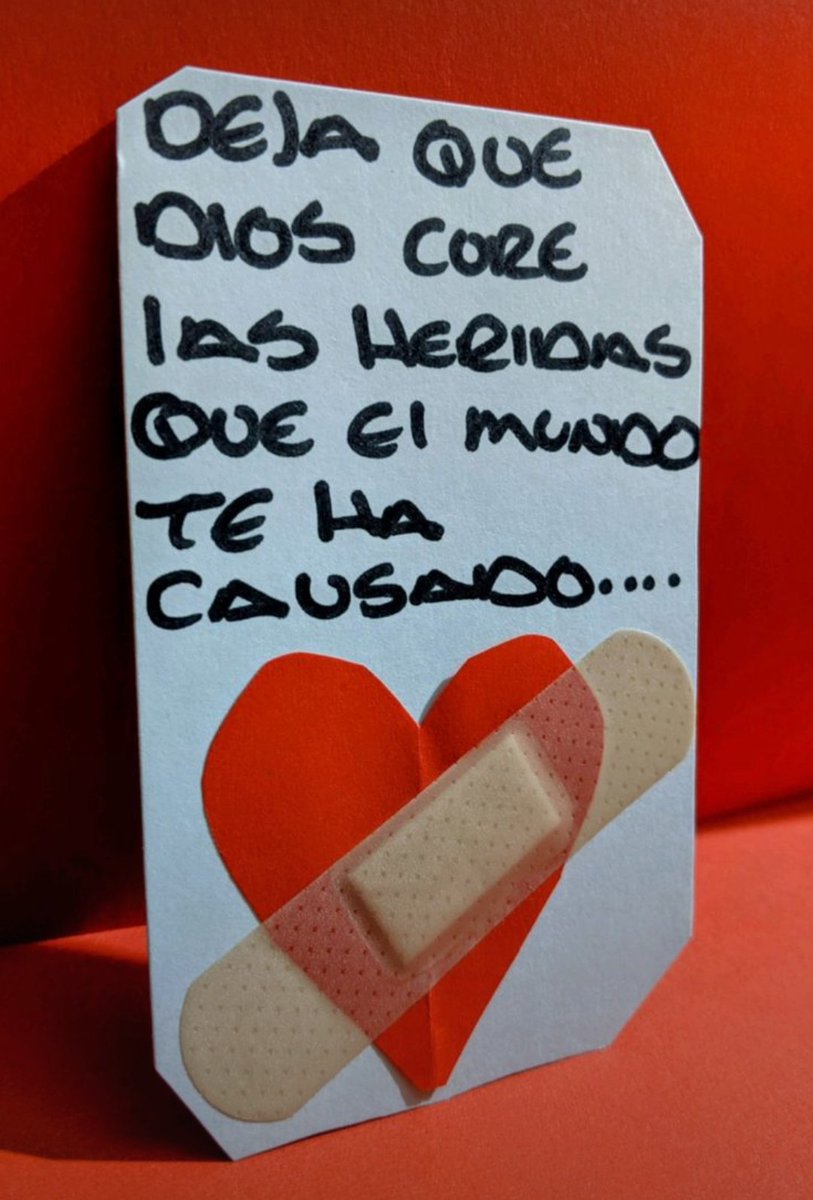 DEJA QUE
DIOS CURE
lAS HERIDAS
QUE El MUNDO
TE HA
CAUSADO....